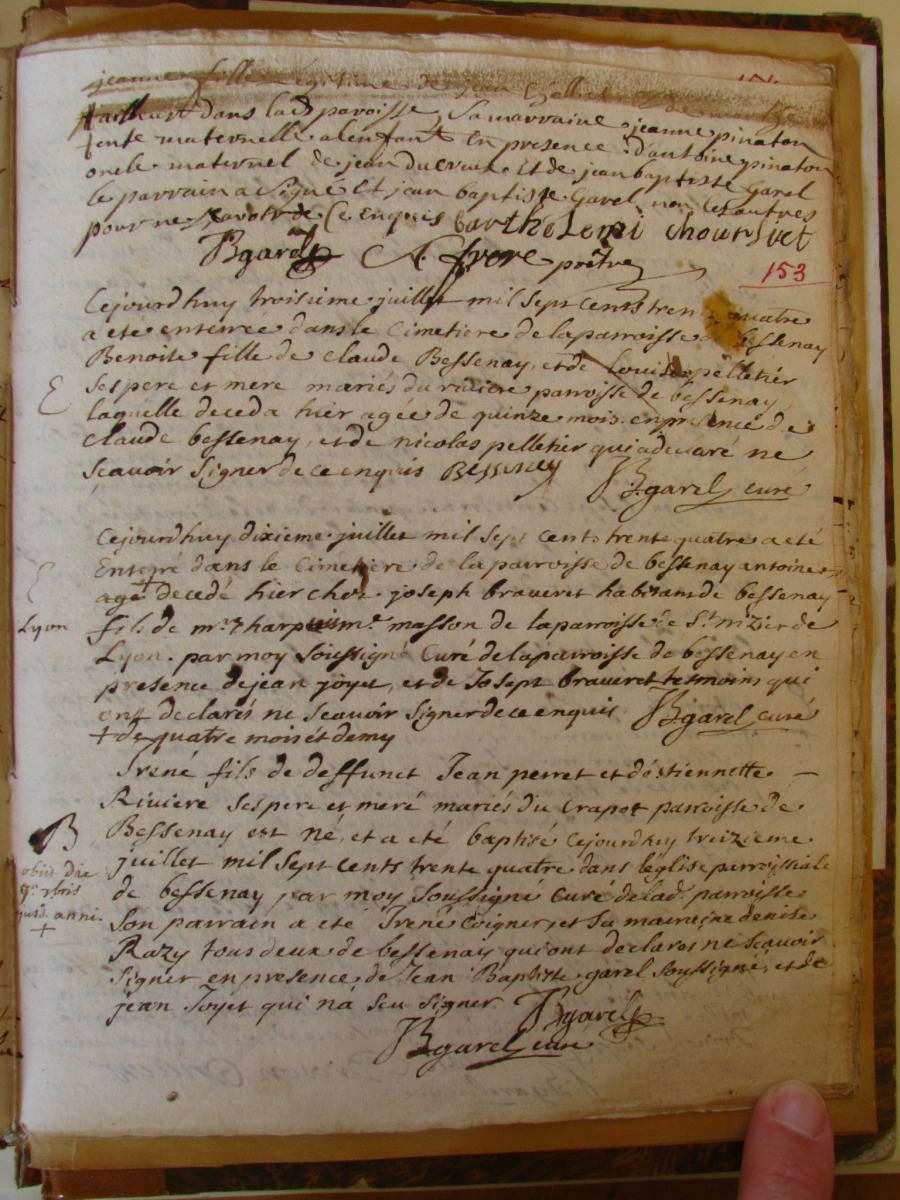 jeanne fille legitime de jean
tailleur dans lad. paroisse, Sa marraine jeanne pinaton
tente maternelle a lenfant En presence d'antoine pinaton
oncle maternel de jean et de jean baptiste Garel
le parrain a signé Et jean baptiste Garel non les autres
pour ne scavoir de Ce Enquis barthelemi
JBgarel frere prêtre
153
Cejourdhuy troisieme juillet mil Sept cents trente quatre
a ete enterrée dans le Cimetiere de la parroisse de bessenay
Benoite fille de Claude Bessenay, et de Louise pelletier
Ses pere et mere mariés du riviere parroisse de bessenay
laquelle deceda hier agée de quinze mois. en presence de
Claude bessenay, et de nicolas pelletier qui a declaré ne
Scavoir Signer de ce enquis Bessenay
E
JBgarel curé
Cejourdhuy dixieme juillet mil Sept Cents trente quatre a eté
Enterré dans le Cimetiere de la parroisse de bessenay antoine
agé + decedé hier chez joseph braveret habitant de bessenay
E
Lyon
fils de mr. masson de la parroisse de St. nizier de
Lyon. par moy Soussigné Curé de la parroisse de bessenay en
presence de jean joyet, et de Joseph braveret tesmoins qui
ont declarés ne Scavoir Signer de ce enquis JBgarel curé
+ de quatre mois et demy
Irené fils de deffunct Jean perret et d'estiennette
Riviere Ses pere et meré mariés du Crapot parroisse de
Bessenay est né, et a eté baptisé Cejourdhuy treizieme
juillet mil Sept Cents trente quatre dans l'église parroissiale
de bessenay par moy Soussigné Curé de lad. parroisse
B
obiit die
9a 7bris
anni.
+
Son parrain a eté Irené Coigner, et Sa marraine denise
Razy tous deux de bessenay qui ont declares ne Scavoir
Signer en presence de Jean Baptiste garel Soussigné, et de
jean Joyet qui n'a Seu Signer JBgarel
JBgarel curé